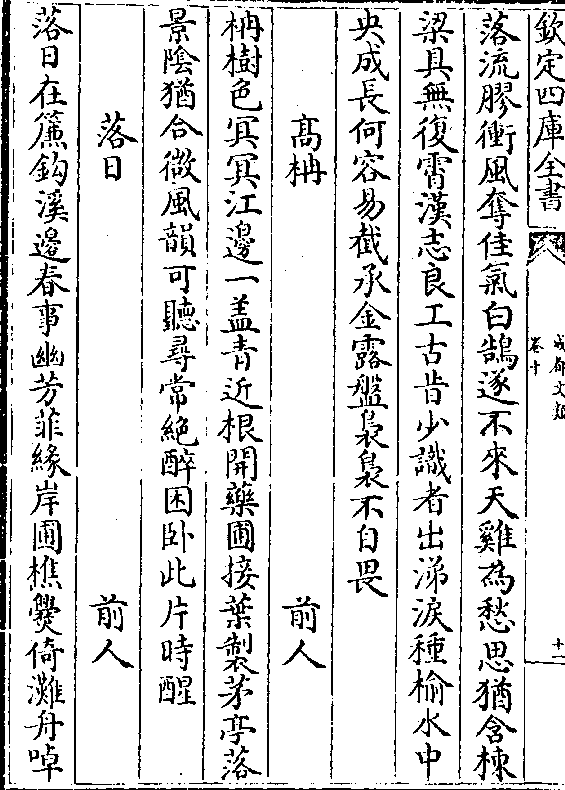 欽定四庫全書
成都文類
卷十
十一
落流膠衝風奪佳氣白鵠遂不來天雞為愁思猶含棟
梁具無復霄漢志良工古昔少識者出涕淚種榆水中
央成長何容易截承金露盤裊裊不自畏
高柟　前人
柟樹色冥冥江邊一盖青近根開藥圃接葉製茅亭落
景陰猶合微風韻可聽尋常絶醉困卧此片時醒
落日　前人
落日在簾鈎溪邊春事幽芳菲緣岸圃樵爨倚灘舟啅